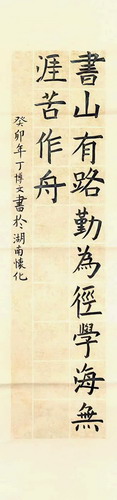 書山有路勤為徑學海無
涯苦作舟
癸卯年丁博文書於湖南懷化